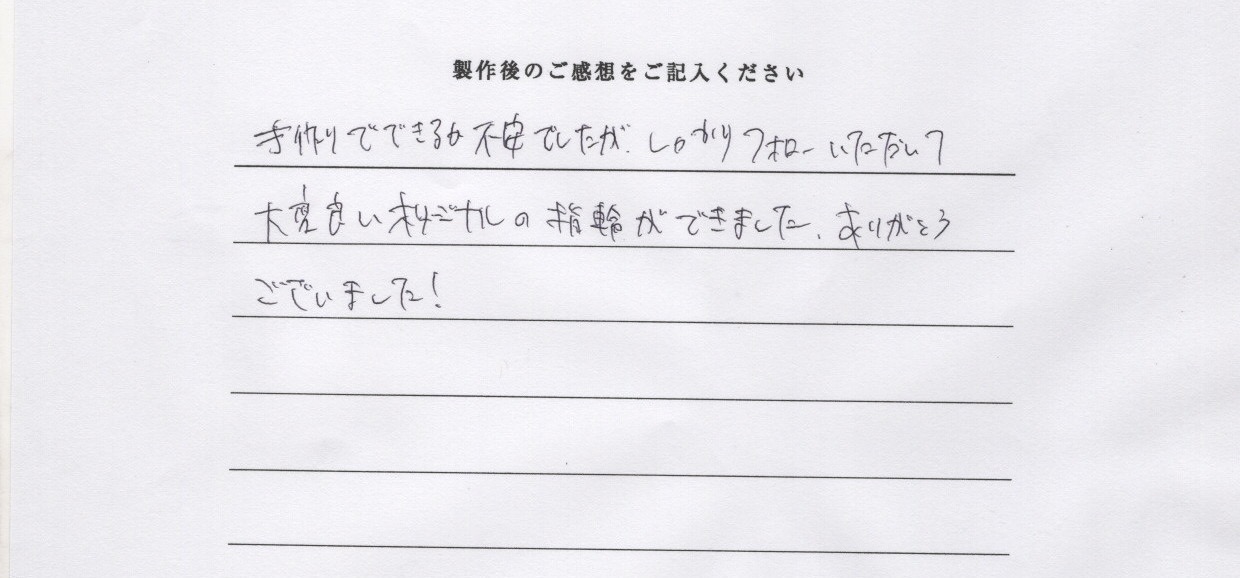 製作後のご感想をご記入ください
手作りでできるか不安でしたが、しっかりフォローいただいて
大変良いオリジナルの指輪ができました、ありがとう
ございました!